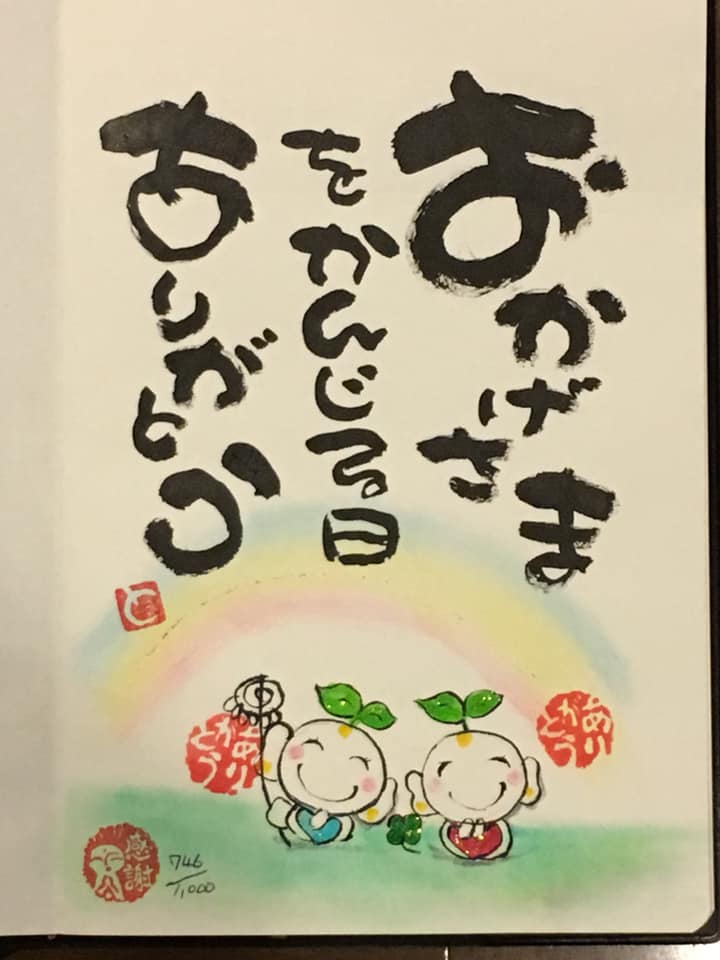 おかげさま
をかんじる日
ありがとう
と
ありがとう
ありがとう
感謝
746/1,000